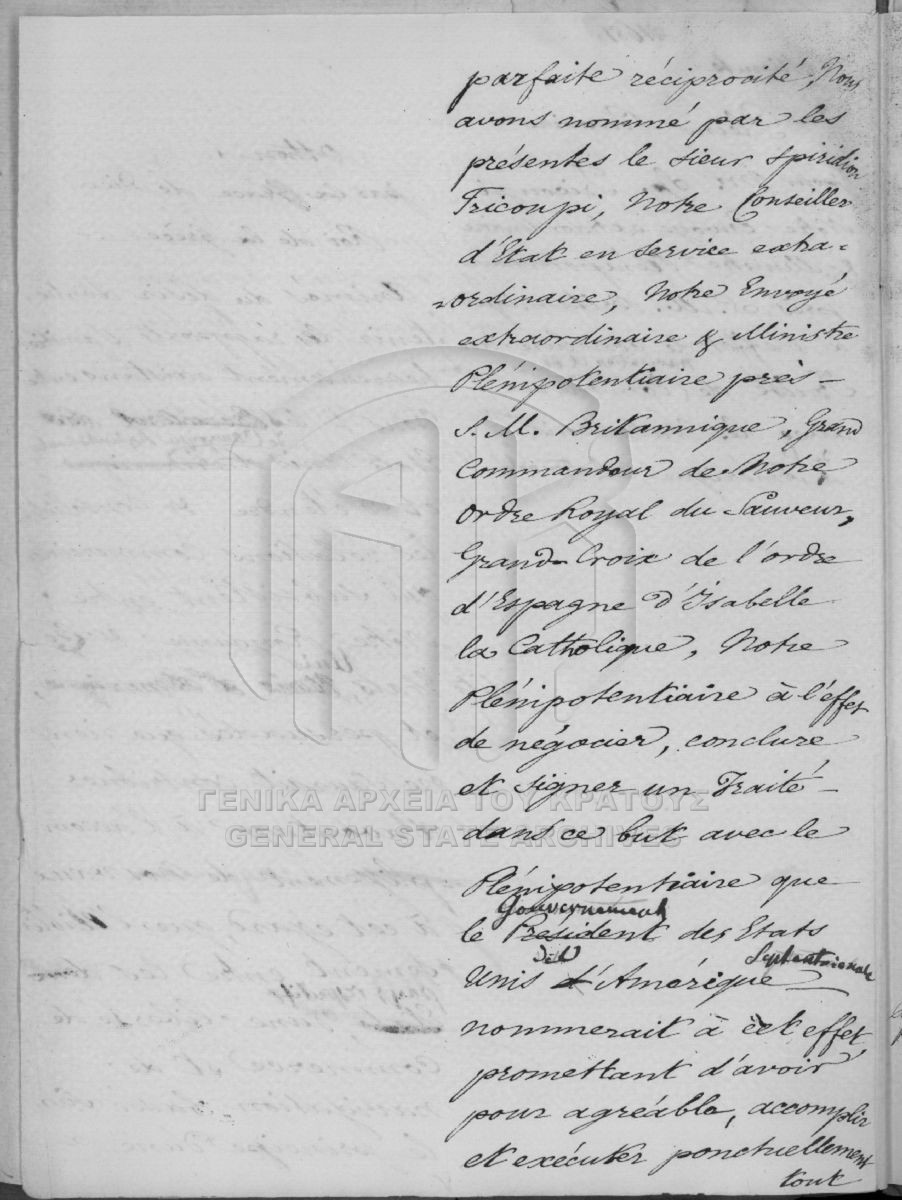 parfaite réciprocité, Nous
avons nommé par les
présentes le sieur Spiridion
Tricoupi, Notre Conseiller
d'Etat en service extra-
ordinaire, Notre Envoyé
extraordinaire & Ministre
Plénipotentiaire près
S. M. Britannique, Grand
Commandeur de Notre
Ordre Royal du Sauveur,
Grand-Croix de l'ordre
d'Espagne d'Isabelle
la Catholique, Notre
Plénipotentiaire à l'effet
de négocier, conclure
et signer un Traité
dans ce but avec le
Plénipotentiaire que
Gouvernement
le President des Etats
de l' Septentrionale
Unis d'Amérique
nommerait à cet effet
promettant d'avoir
pour agréable, accomplir
et exécuter ponctuellement
tout
ΓΕΝΙΚΑ ΑΡΧΕΙΑ ΤΟΥ ΚΡΑΤΟΥΣ
GENERAL STATE ARCHIVES